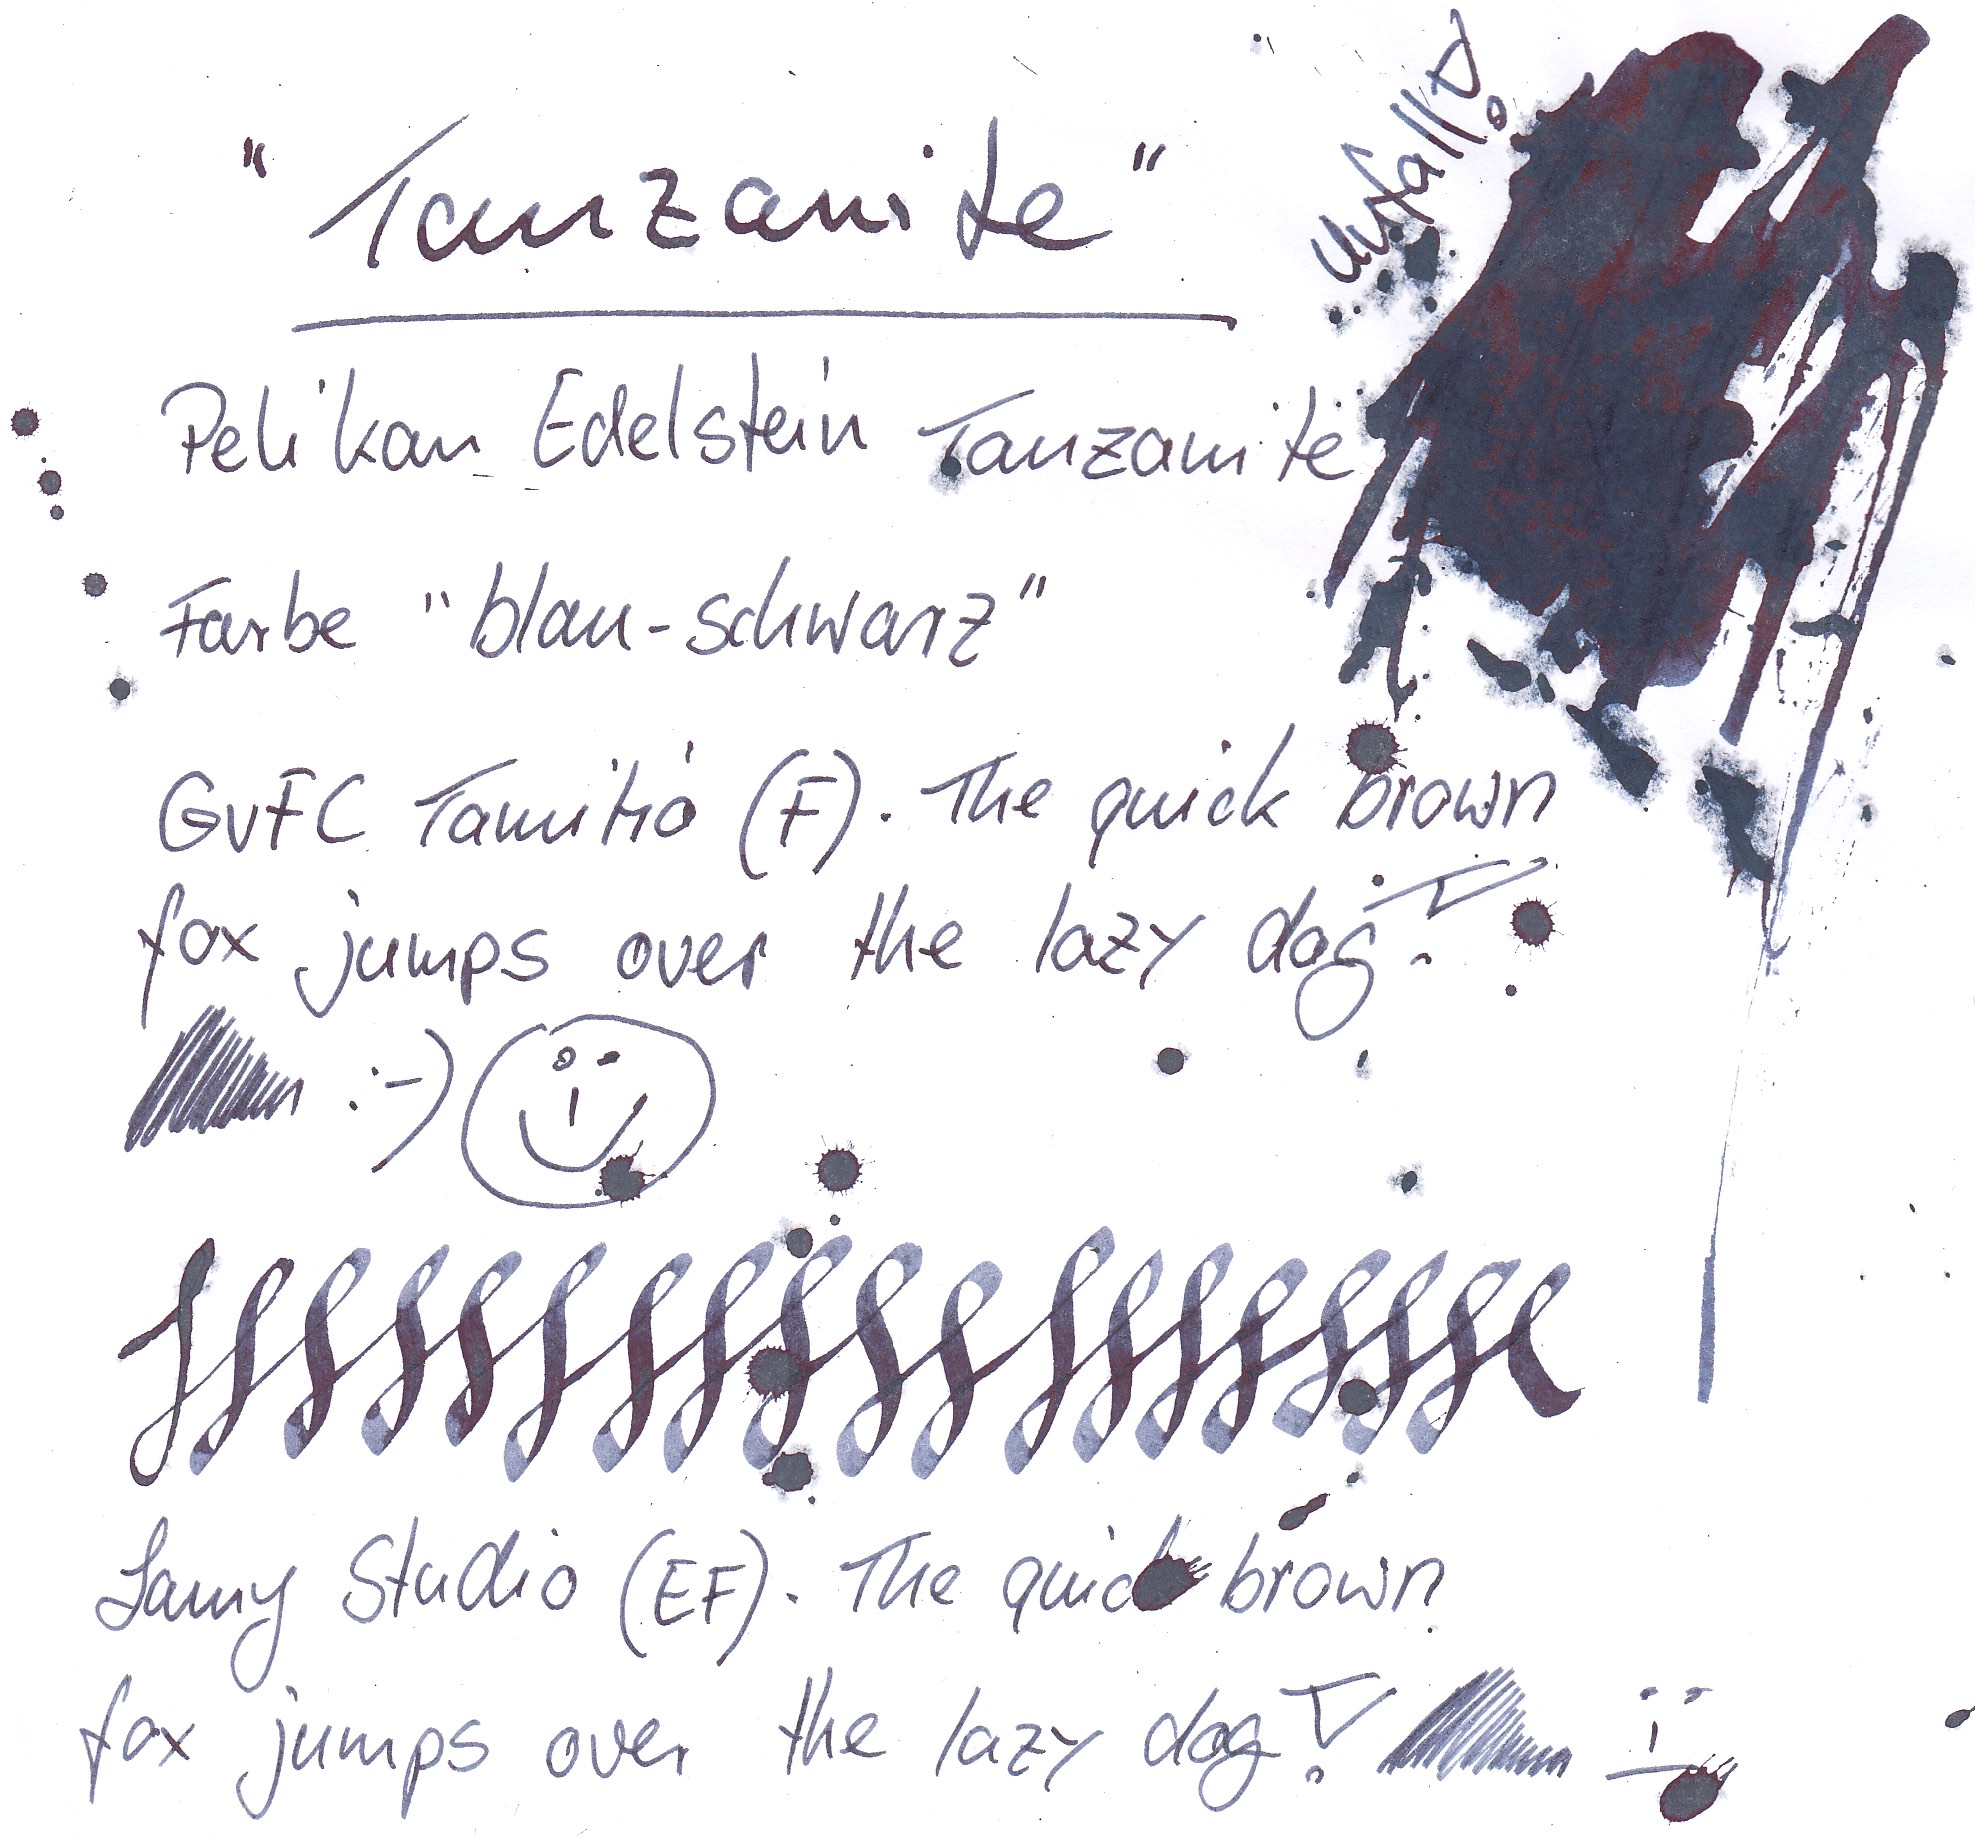 "Tanzanite"
Unfall!
Pelikan Edelstein Tanzanite
Farbe "blau-schwarz"
GvFC Tamitio (F). The quick brown
fox jumps over the lazy dog!
:-)
Lamy Studio (EF). The quick brown
fox jumps over the lazy dog!